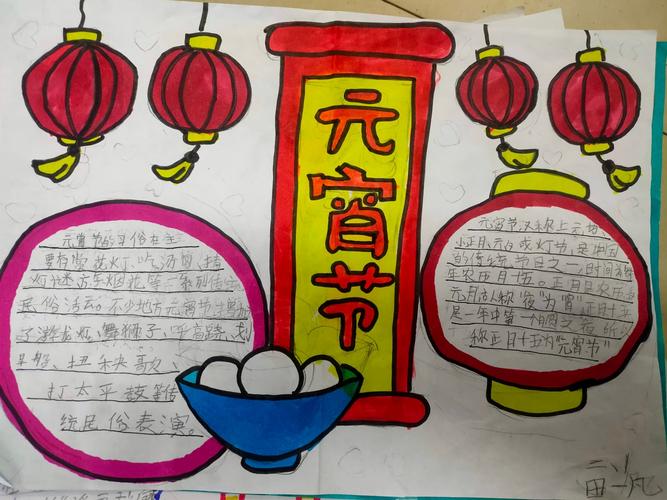 元宵节
元宵节的习俗在主
要有赏花灯、吃汤圆、猜
灯谜、放烟花等一系列传统
民俗活动。不少地方元宵节增加
了游龙灯、舞狮子、踩高跷、
扭秧歌
打太平鼓等传
统民俗表演。
元宵节又称上元节、
小正月、元夕或灯节,是中国
的传统节日之一,时间
年农历正月十五。正月是农历
元月,古人称"夜"为"宵"正月十五
是一年中第一个月圆之 所以
称正月十五为"元宵节"